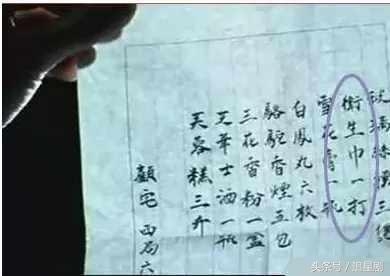 璃絲襪三
衛生巾一打
雪花膏一瓶
白鳳丸六枚
駱駝香煙五包
三花香粉一盒
華士酒一瓶
芙蓉糕三斤
顧宅 西局六
头条号 / 追星剧